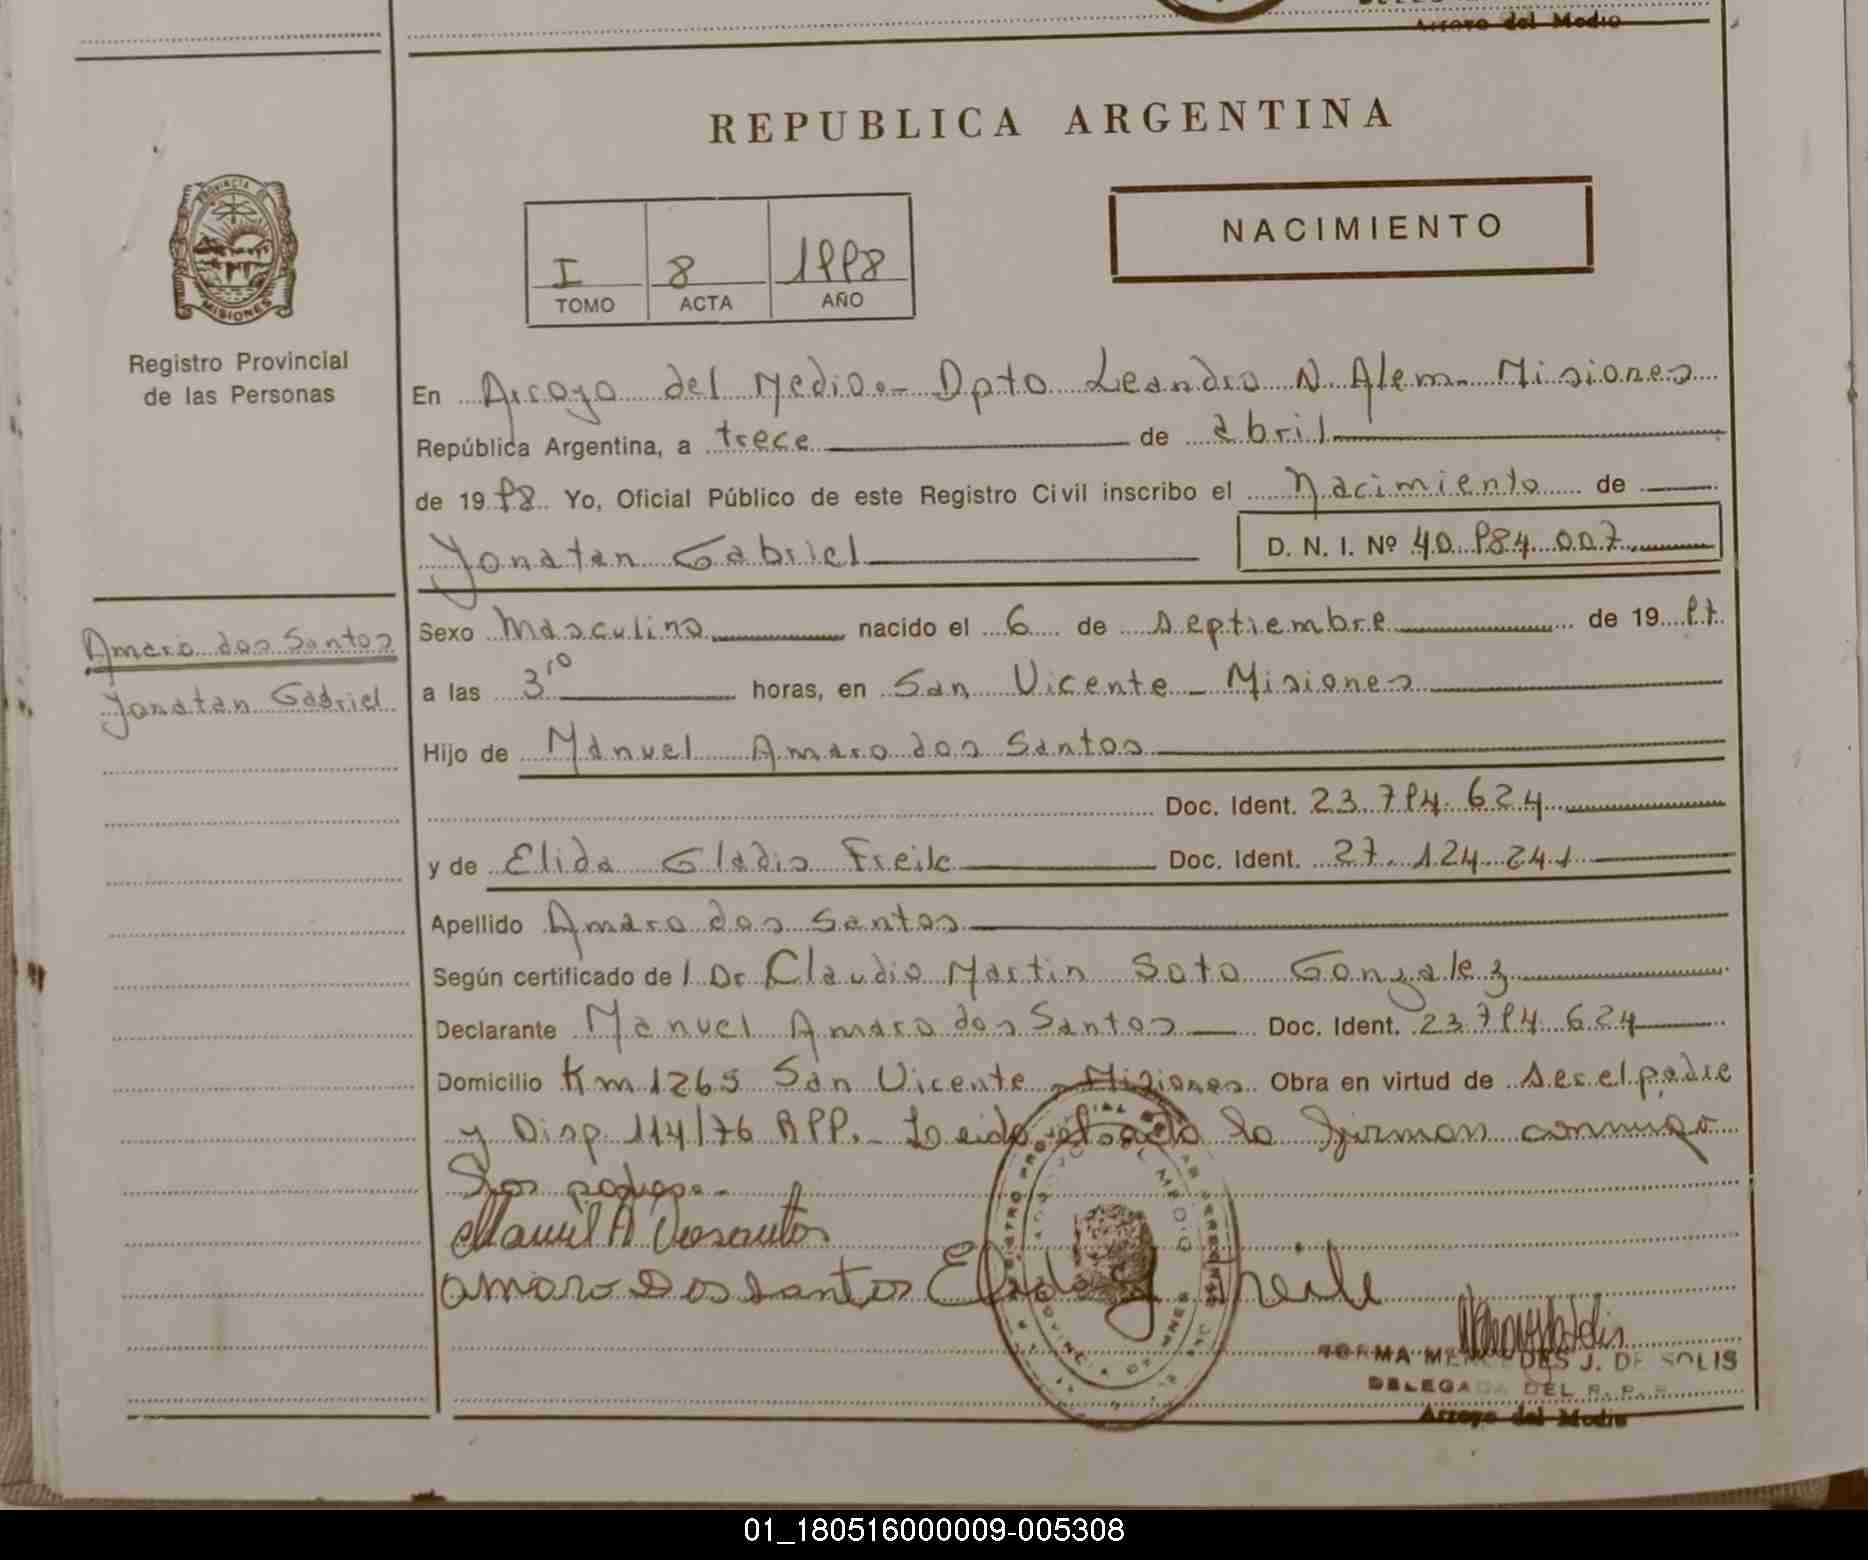 Arroyo del Medio
REPUBLICA ARGENTINA
NACIMIENTO
I 8 1998
TOMO ACTA AÑO
PROVINCIA DE
MISIONES
Registro Provincial
de las Personas
En Arroyo del Medio.- Dpto Leandro N Alem - Misiones
República Argentina, a trece de abril
de 1998 Yo, Oficial Público de este Registro Civil inscribo el Nacimiento de
Yonatan Gabriel D. N. I. Nº 40.984.007
Amaro dos Santos
Yonatan Gabriel
Sexo Masculino nacido el 6 de septiembre de 1997
a las 3,10 horas, en San Vicente - Misiones
Hijo de Manuel Amaro dos Santos
Doc. Ident. 23.794.624
y de Elida Gladis Freile Doc. Ident. 27.124.241
Apellido Amaro dos Santos
Según certificado de l Dr Claudio Martin Soto Gonzalez
Declarante Manuel Amaro dos Santos Doc. Ident. 23.794.624
Domicilio Km 1265 San Vicente - Misiones Obra en virtud de ser el padre
y Disp 114/76 RPP.- Leida el acta la firman conmigo
los padres.-
Manuel A Dosantos
amaro Dos santos Elida G Freile
NORMA MERCEDES J. DE SOLIS
DELEGADA DEL R. P. P.
Arroyo del Medio
01_180516000009-005308